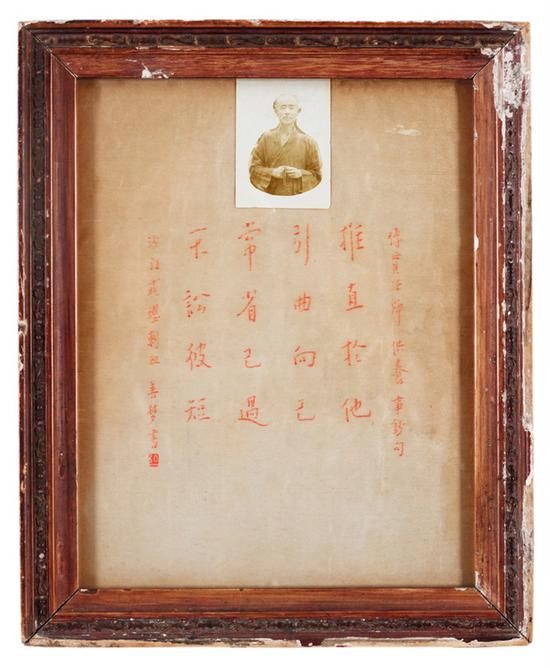 傳貫法師供養事鈔句
推直於他
引曲向己
常省己過
不訟彼短
善夢書